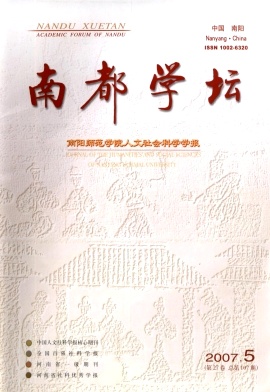 NANDU XUETAN
ACADEMIC FORUM OF NANDU
中国 南阳
Nanyang·China
ISSN 1002-6320
南都学坛
南阳师范学院人文社会科学学报
中国人文社科学报核心期刊
全国百强社科学报
河南省一级期刊
河南省社科优秀学报
2007.5
(第27卷 总第147期)